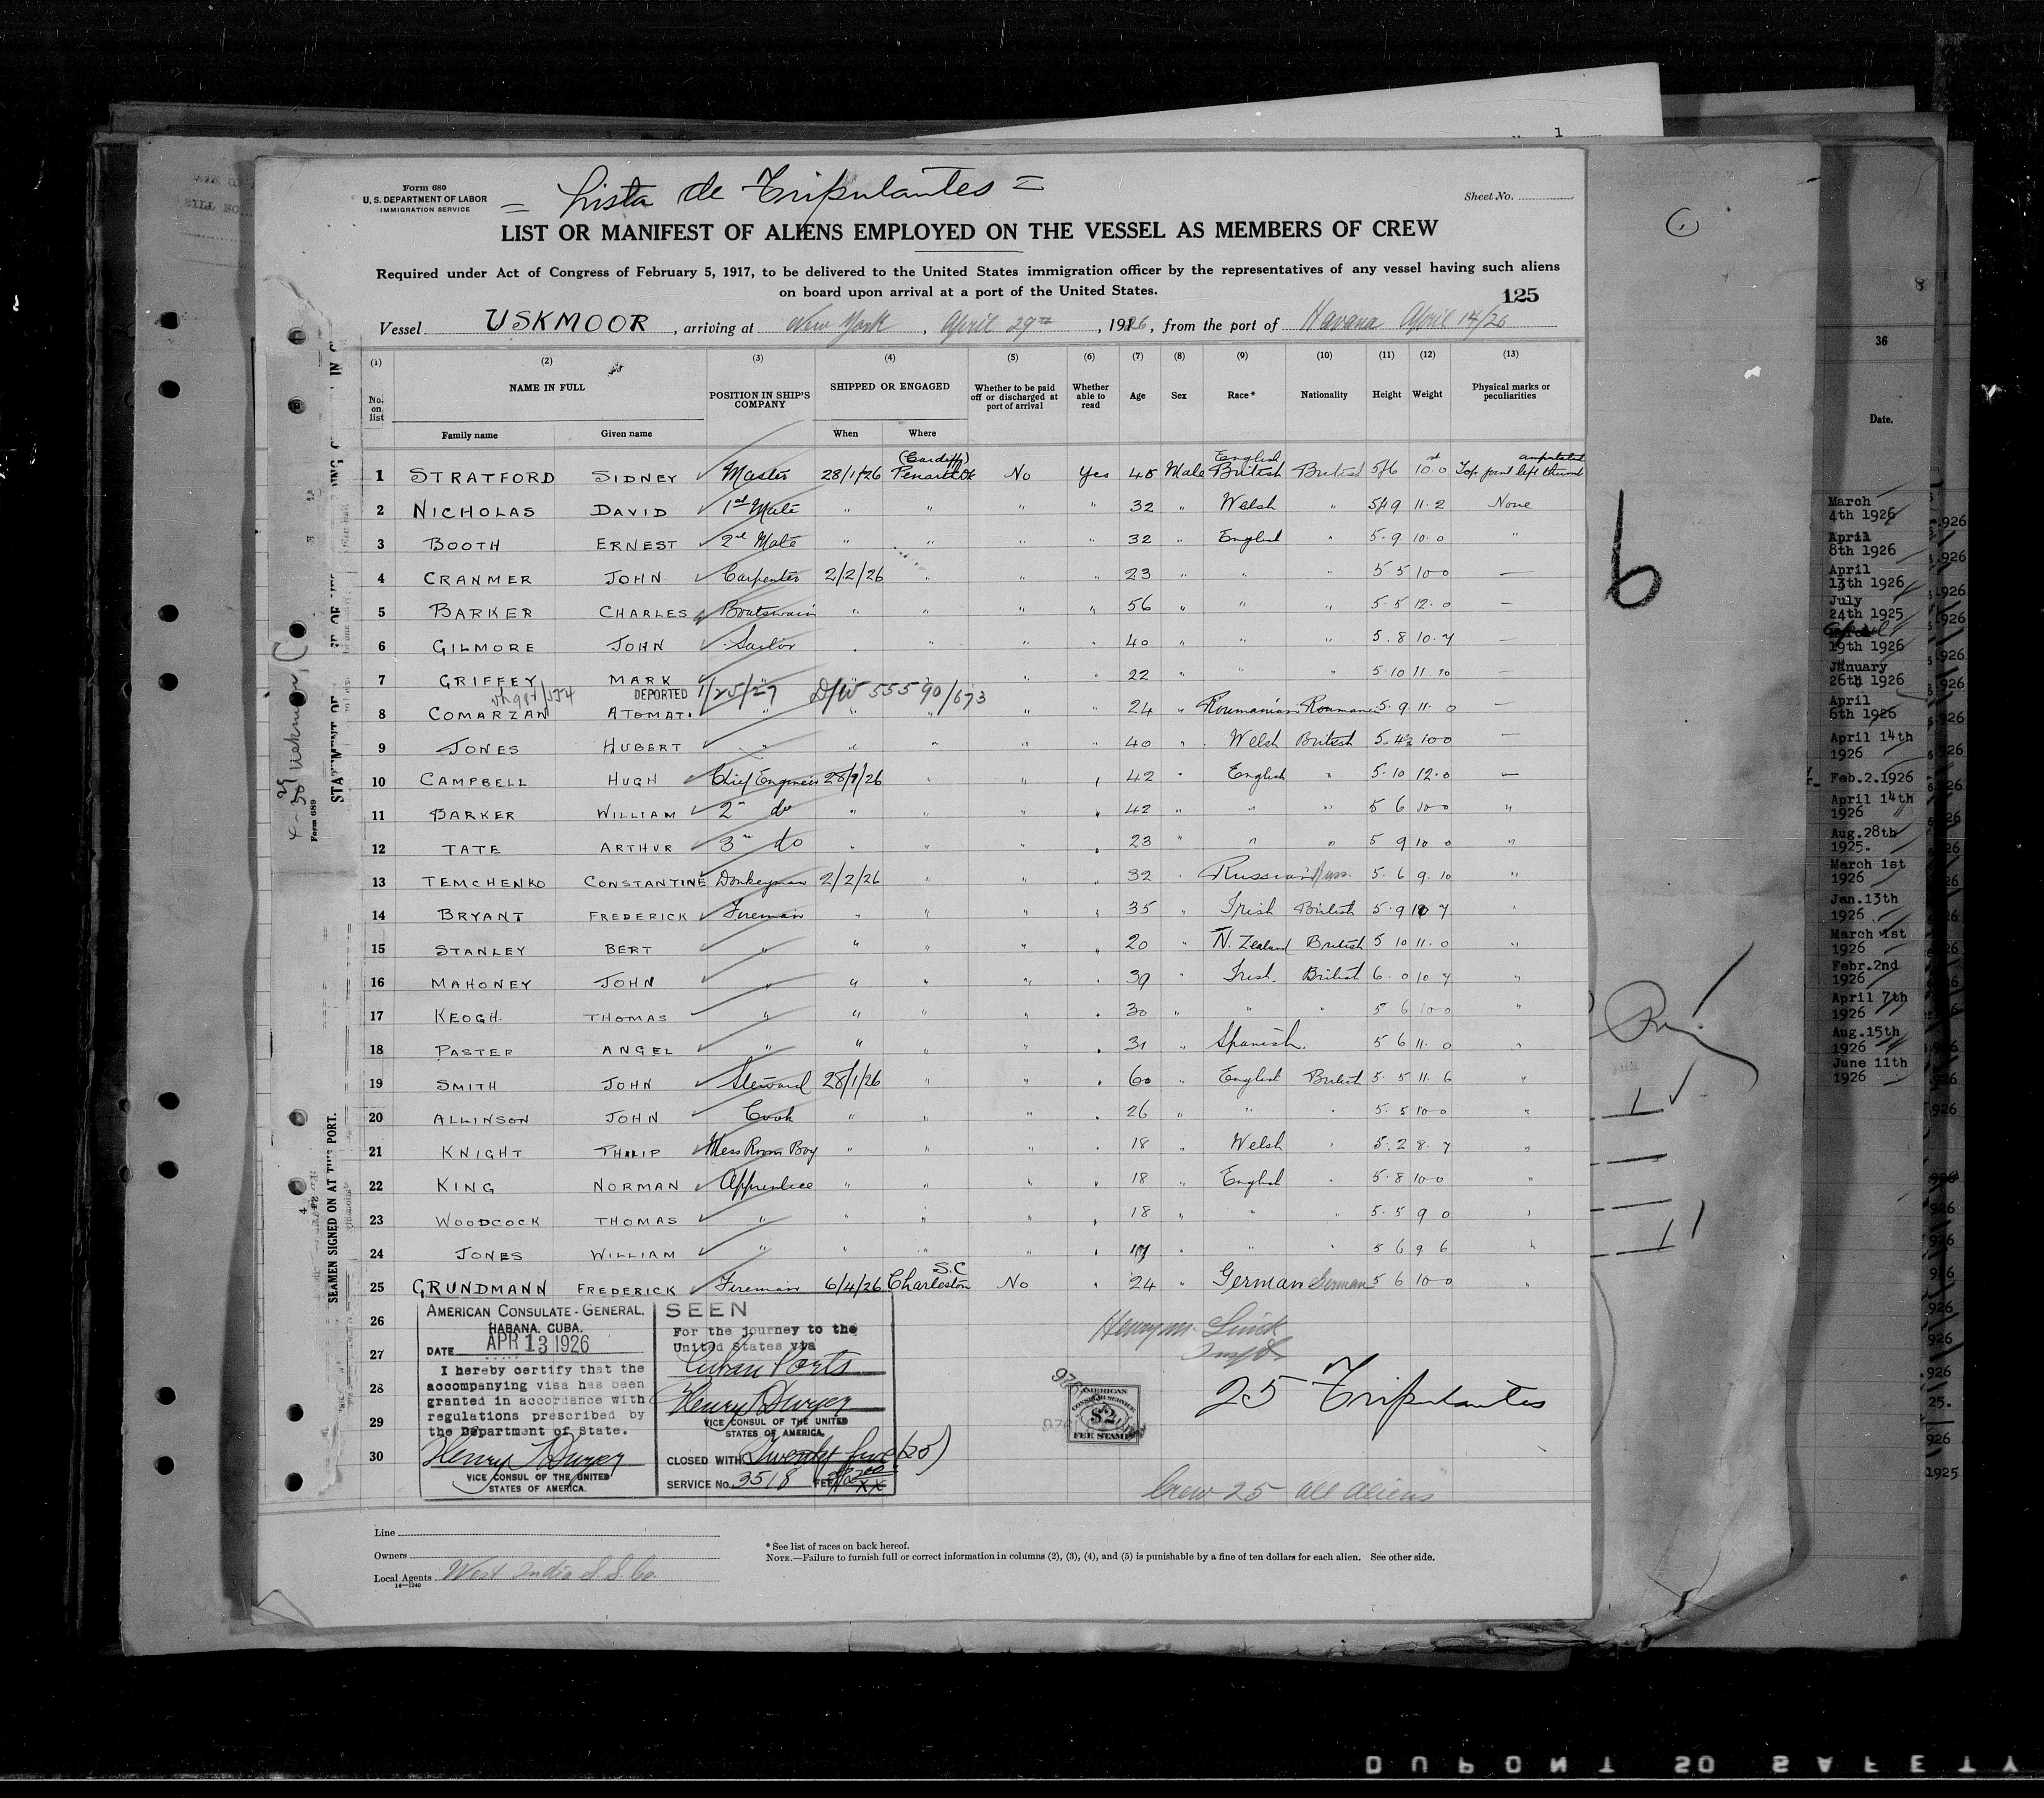 1
Form 680
U. S. DEPARTMENT OF LABOR
IMMIGRATION SERVICE
= Lista de Tripulantes =
Sheet No.
LIST OR MANIFEST OF ALIENS EMPLOYED ON THE VESSEL AS MEMBERS OF CREW
Required under Act of Congress of February 5, 1917, to be delivered to the United States immigration officer by the representatives of any vessel having such aliens
on board upon arrival at a port of the United States.
125
Vessel USKMOOR, arriving at New York, April 29th, 1926, from the port of Havana April 14/26
(1) (2) (3) (4) (5) (6) (7) (8) (9) (10) (11) (12) (13)
No. on list NAME IN FULL POSITION IN SHIP'S COMPANY SHIPPED OR ENGAGED Whether to be paid off or discharged at port of arrival Whether able to read Age Sex Race* Nationality Height Weight Physical marks or peculiarities
Family name Given name When Where
1 STRATFORD SIDNEY Master 28/1/26 (Cardiff) Penarth Dk No Yes 45 Male English British British 5/6 10.0 Top joint left thumb amputated
2 NICHOLAS DAVID 1st Mate " " " " 32 " Welsh " 5/9 11.2 None
3 BOOTH ERNEST 2nd Mate " " " " 32 " English " 5.9 10.0 "
4 CRANMER JOHN Carpenter 2/2/26 " " " 23 " " " 5.5 10 0 —
5 BARKER CHARLES Boatswain " " " " 56 " " " 5.5 12.0 —
6 GILMORE JOHN Sailor " " " 40 " " " 5.8 10.7 —
7 GRIFFEY MARK " " " 22 " " " 5.10 11.10 —
DEPORTED 1/25/27 D/W 55590/673
8 COMARZAN ATOMATI " " " " " 24 " Roumanian Roumanian 5.9 11.0 —
9 JONES HUBERT " " " " " 40 " Welsh British 5.4½ 10 0 —
10 CAMPBELL HUGH Chief Engineer 28/1/26 " " 42 " English " 5.10 12.0 —
11 BARKER WILLIAM 2nd do " " " " 42 " " " 5 6 10 0 "
12 TATE ARTHUR 3rd do " " " " 23 " " " 5 9 10 0 "
13 TEMCHENKO CONSTANTINE Donkeyman 2/2/26 " " " 32 " Russian Russ. 5.6 9.10 "
14 BRYANT FREDERICK Fireman " " " " 35 " Irish British 5.9 10 7 "
15 STANLEY BERT " " " " " 20 " N. Zealand British 5 10 11.0 "
16 MAHONEY JOHN " " " " " 39 " Irish. British 6.0 10 7 "
17 KEOGH. THOMAS " " " " " 30 " " " 5 6 10 0 "
18 PASTER ANGEL " " " " " 31 " Spanish. 5 6 11.0 "
19 SMITH JOHN Steward 28/1/26 " " " 60 " English British 5.5 11.6 "
20 ALLINSON JOHN Cook " " " " 26 " " " 5.5 10 0 "
21 KNIGHT PHILIP Mess Room Boy " " " " 18 " Welsh " 5.2 8.7 "
22 KING NORMAN Apprentice " " " " 18 " English " 5.8 10 0 "
23 WOODCOCK THOMAS " " " " " 18 " " " 5.5 9 0 "
24 JONES WILLIAM " " " " " " " " 5 6 9 6 "
25 GRUNDMANN FREDERICK Fireman 6/4/26 Charleston S.C No " 24 " German German 5 6 10 0 "
26
27
28
29
30
AMERICAN CONSULATE-GENERAL.
HABANA, CUBA.
DATE APR 13 1926
I hereby certify that the
accompanying visa has been
granted in accordance with
regulations prescribed by
the Department of State.
VICE CONSUL OF THE UNITED
STATES OF AMERICA.
SEEN
For the journey to the
United States via
Cuban Ports
VICE CONSUL OF THE UNITED
STATES OF AMERICA.
CLOSED WITH Twenty five (25)
SERVICE No. 3518 FEE
AMERICAN
CONSULAR SERVICE
$2
FEE STAMP
25 Tripulantes
Crew 25 all aliens
Line
Owners
Local Agents West India S.S. Co.
14—1240
* See list of races on back hereof.
NOTE.—Failure to furnish full or correct information in columns (2), (3), (4), and (5) is punishable by a fine of ten dollars for each alien. See other side.
Form 689
SEAMEN SIGNED ON AT THIS PORT.
6
36
Date.
March
4th 1926
April
8th 1926
April
13th 1926
July
24th 1925
19th 1926
January
26th 1926
April
6th 1926
April 14th
1926
Feb.2.1926
April 14th
1926
Aug.28th
1925.
March 1st
1926
Jan.13th
1926
March 1st
1926
Febr.2nd
1926
April 7th
1926
Aug.15th
1926
June 11th
1926
DUPONT SO SAFETY